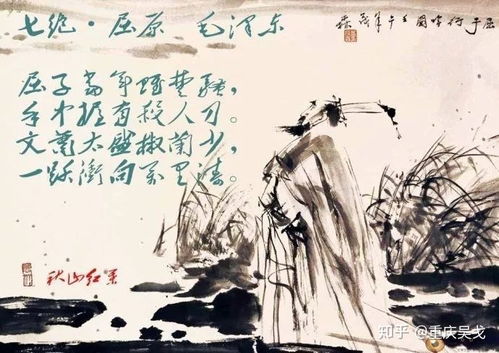 七绝·屈原 毛泽东
屈子行吟图 壬午年
屈子当年赋楚骚,
手中握有殺人刀。
艾萧太盛椒兰少,
一跃衝向万里涛。
秋山红叶
知乎 @重庆吴戈